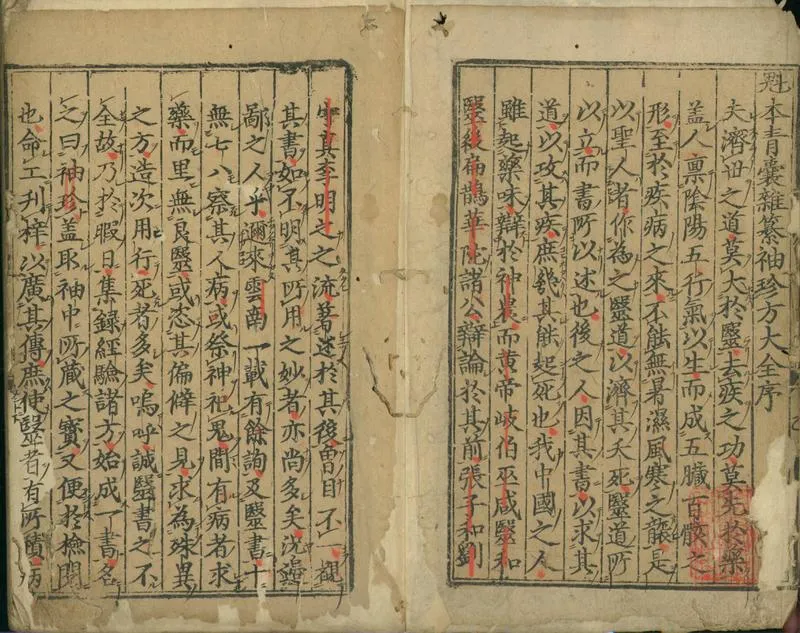 魁本青囊雜纂袖珍方大全序
夫濟世之道莫大於毉去疾之功莫先於藥
盖人禀陰陽五行氣以生而成五臟百骸之
形至於疾病之來不能無暑濕風寒之襲是
以聖人者作為之毉道以濟其夭死毉道所
以立而書所以述也後之人因其書以求其
道以攻其疾庶幾其能起死也我中國之人
雖起藥味辯於神農而黄帝岐伯巫咸毉和
毉後扁鵲華陀諸公辯論於其前張子和劉
守真李明之之流著述於其後曾目不一觀
其書如不明其所用之妙者亦尚多矣况邊
鄙之人乎邇來雲南一載有餘詢及毉書十
無七八察其人病或祭神祀鬼間有病者求
藥而里無良毉或恣其偏僻之見求為殊異
之方造次用行死者多矣嗚呼誠毉書之不
全故乃於暇日集録經驗諸方始成一書名
之曰袖珍盖取袖中所藏之寳又便於檢閲
也命工刋梓以廣其傳庶使毉者有所